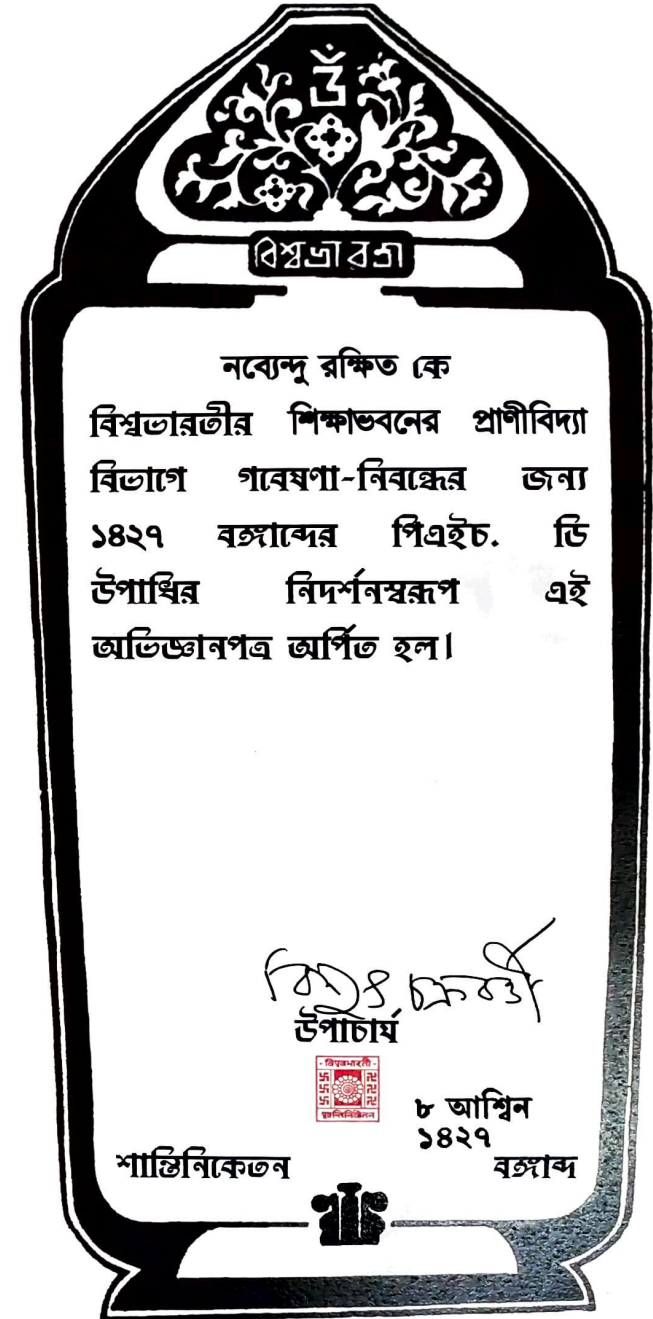 ওঁ
বিশ্বভারতী
নব্যেন্দু রক্ষিত কে
বিশ্বভারতীর শিক্ষাভবনের প্রাণীবিদ্যা
বিভাগে গবেষণা-নিবন্ধের জন্য
১৪২৭ বঙ্গাব্দের পিএইচ. ডি
উপাধির নিদর্শনস্বরূপ এই
অভিজ্ঞানপত্র অর্পিত হল।
বিদ্যুৎ চক্রবর্তী
উপাচার্য
৮ আশ্বিন
১৪২৭
শান্তিনিকেতন বঙ্গাব্দ